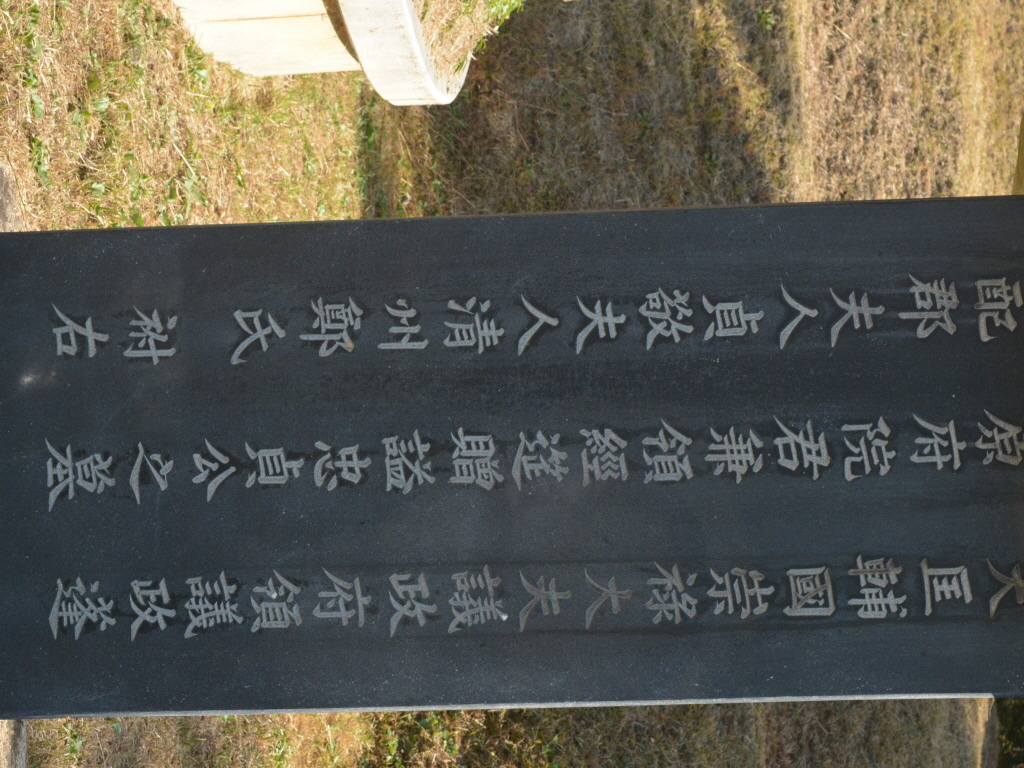 大匡輔國崇祿大夫議政府領議政蓬
原府院君兼領經筵贈諡忠貞公之墓
配郡夫人貞敬夫人清州鄭氏 祔右